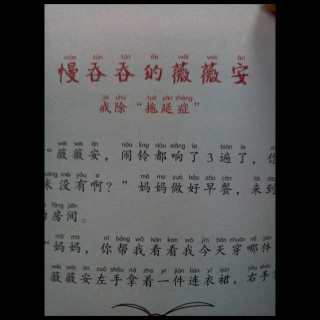 màn tūn tūn de wēi wēi ān
慢吞吞的薇薇安
jiè chú tuō yán zhèng
戒除“拖延症”
wēi wēi ān nào líng dōu xiǎng le biàn le nǐ
“薇薇安，闹铃都响了3遍了，你
lái méi yǒu a mā ma zuò hǎo zǎo cān lái dào
来没有啊？”妈妈做好早餐，来到
fáng jiān
的房间。
mā ma nǐ bāng wǒ kàn kan wǒ jīn tiān chuān nǎ jiàn
“妈妈，你帮我看看我今天穿哪件
wēi wēi ān zuǒ shǒu ná zhe yí jiàn lián yī qún yòu shǒu
薇薇安左手拿着一件连衣裙，右手